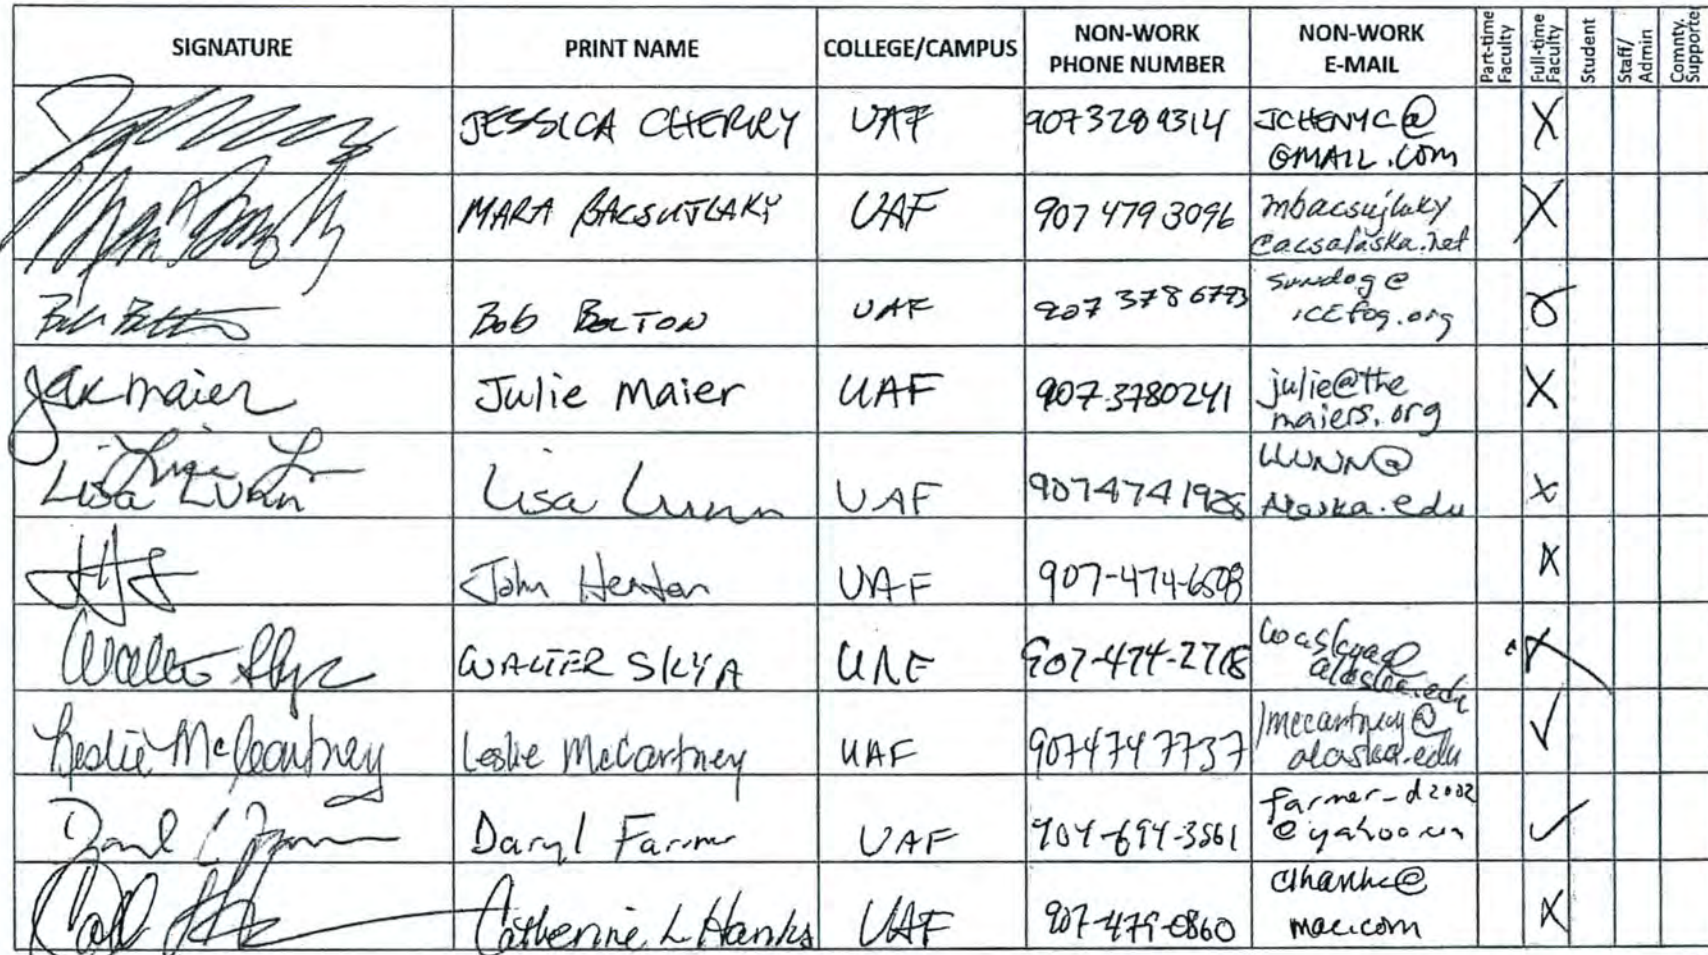 SIGNATURE PRINT NAME COLLEGE/CAMPUS NON-WORK PHONE NUMBER NON-WORK E-MAIL Part-time Faculty Full-time Faculty Student Staff/Admin Commty. Supporter
JESSICA CHERRY UAF 9073289314 JCHENYC@
GMAIL.COM X
MARA BACSUJLAKY UAF 907 479 3096 mbacsujlaky
@acsalaska.net X
Bob Bolton UAF 907 378 6773 sundog@
icefog.org
jakmaier Julie Maier UAF 907.3780241 julie@the
maiers.org X
Lisa Lunn Lisa Lunn UAF 9074741926 LLUNN@
Alaska.edu X
John Henton UAF 907-474-6508 X
WALTER SKYA UAF 907-474-2778 waskya@
alaska.edu X
Leslie McCartney Leslie McCartney UAF 9074747737 lmccartney@
alaska.edu ✓
Daryl Farmer UAF farmer_d2002
@yahoo.com ✓
Catherine L Hanks UAF 907-479-0860
mac.com X